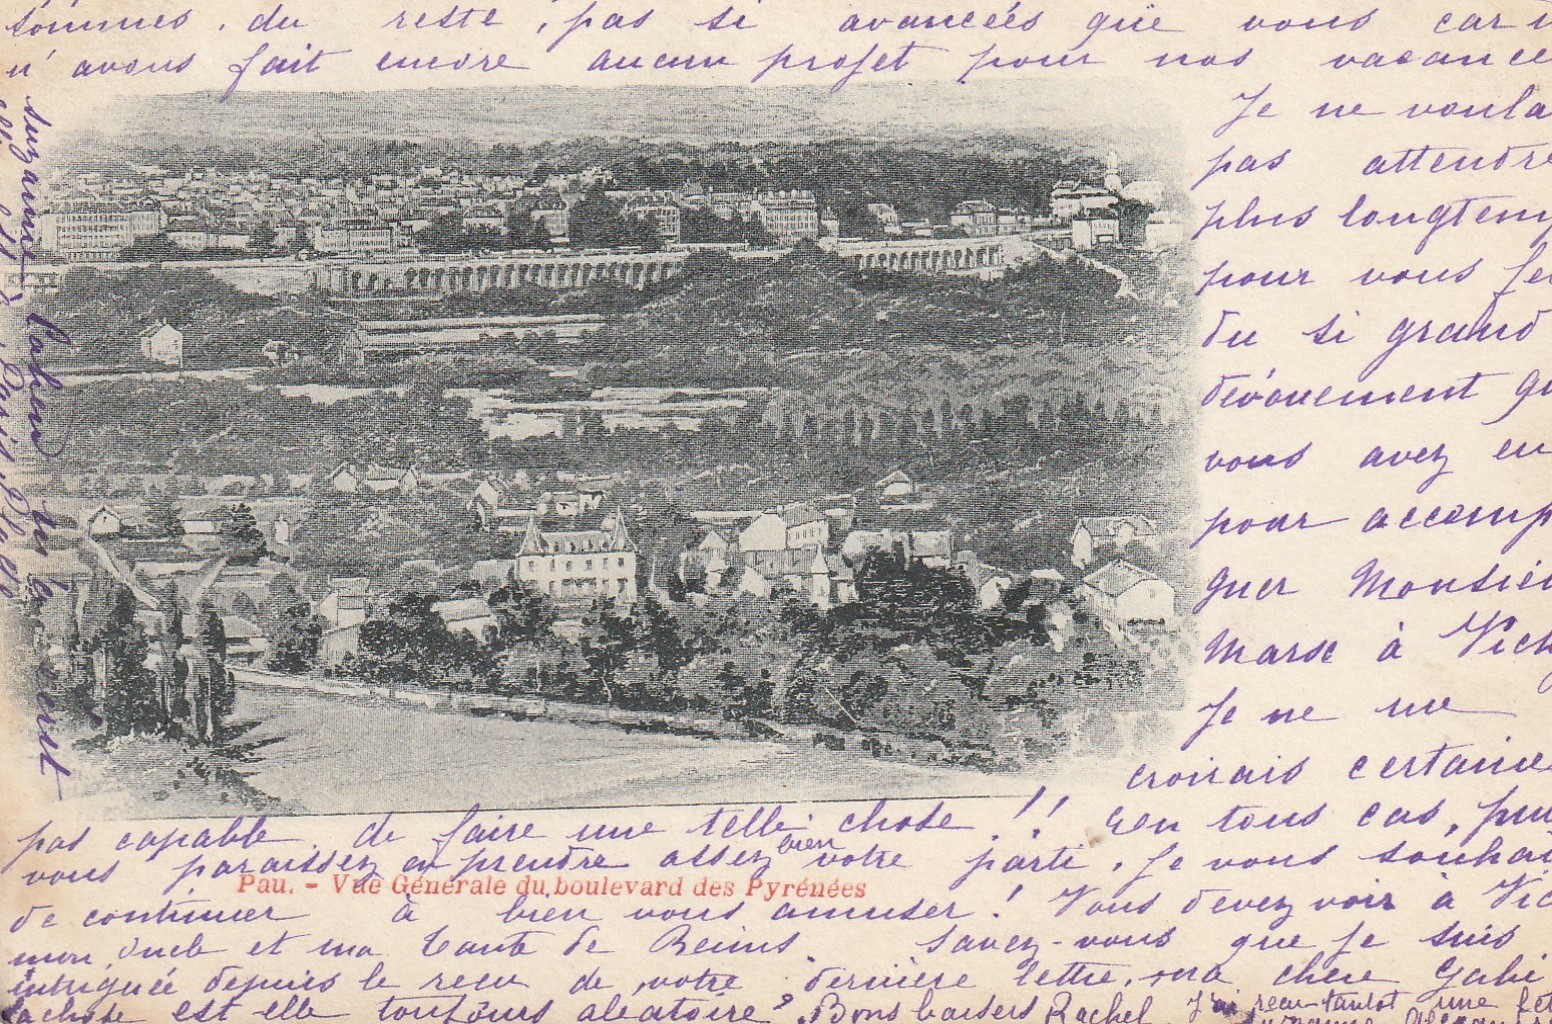 sommes, du reste, pas si avancées que vous car n
n'avons fait encore aucun projet pour nos vacance
Je ne voula
pas attendre
plus longtemp
pour vous fe
du si grand
dévouement qu
vous avez eu
pour accomp
gner Monsieu
Marx à Vich
Je ne me
croirais certaine
pas capable de faire une telle chose !! En tous cas, pui
vous paraissez en prendre assez bien votre parti, je vous souhai
Pau. - Vue Générale du boulevard des Pyrénées
de continuer à bien vous amuser ! Vous devez voir à Vic
mon oncle et ma tante de Reims. Savez-vous que je suis
intriguée depuis le reçu de votre dernière lettre, ma chère Gabi
la chose est elle toujours aléatoire? Bons baisers Rachel. J'ai reçu tantôt une
Suzanne